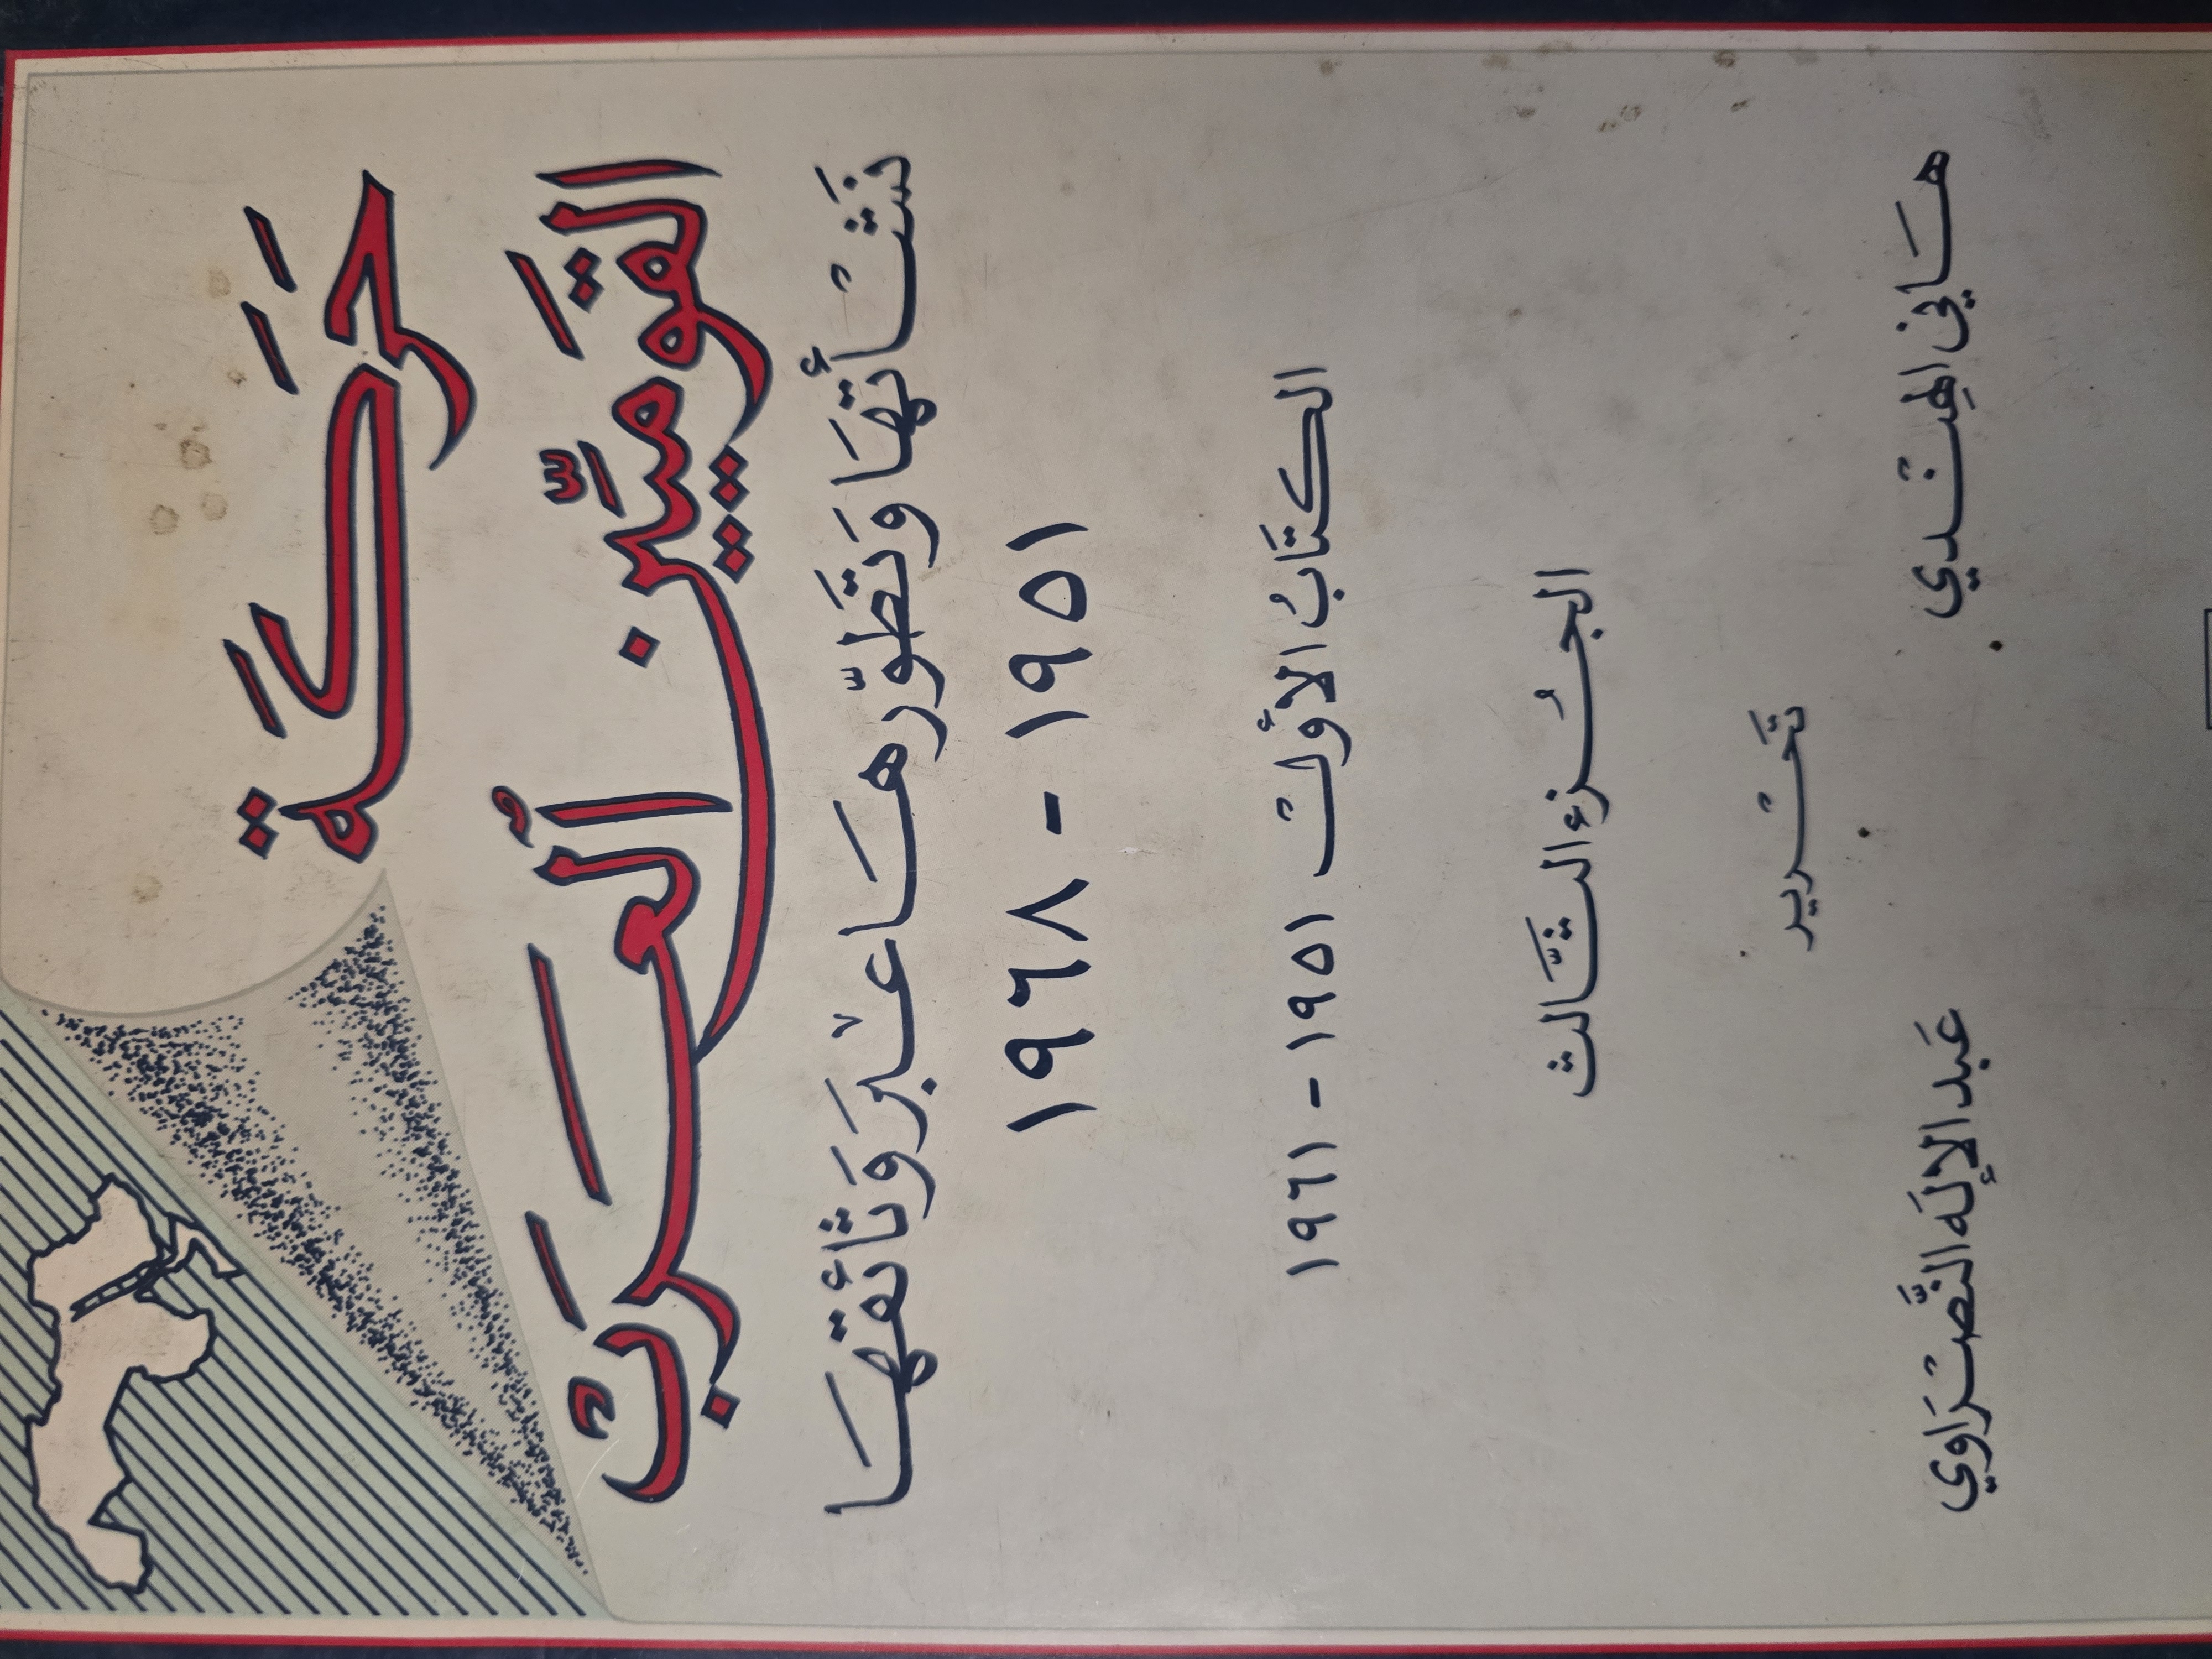 حَركَة
القَوميّين العَرَبْ
نَشْأتهَا وَتَطوّرهَا عبْرَ وَثائقهَا
١٩٥١ - ١٩٦٨
الكتَابُ الأولْ ١٩٥١ - ١٩٦١
الجُزء الثَّالث
تَحْرير
هَاني الهِنْدي
عَبد الإلَه النَّصْرَاوي